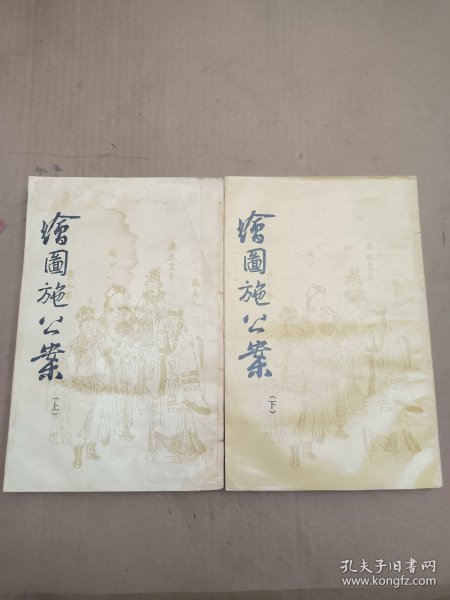 繪圖施公案
（上）
施公
張夫人
繪圖施公案
（下）
孔夫子旧书网
www.kongfz.com